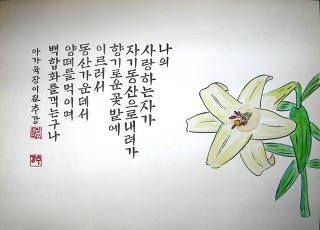 나의
사랑하는자가
자기동산으로내려가
향기로운꽃밭에
이르러서
동산가운데서
양떼를먹이며
백합화를꺽는구나
아가육장이절추강